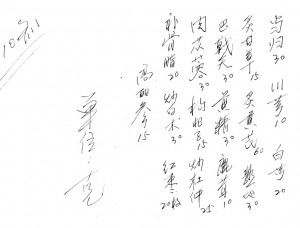 当归30 川芎 白芍20
炙甘草15 炙黄芪60 熟地30
巴戟天30 黄精30 鹿茸10
肉苁蓉30 枸杞子15 炒杜仲25
补骨脂20 炒白术30 红枣20枚
高丽参15
单位:克
10剂